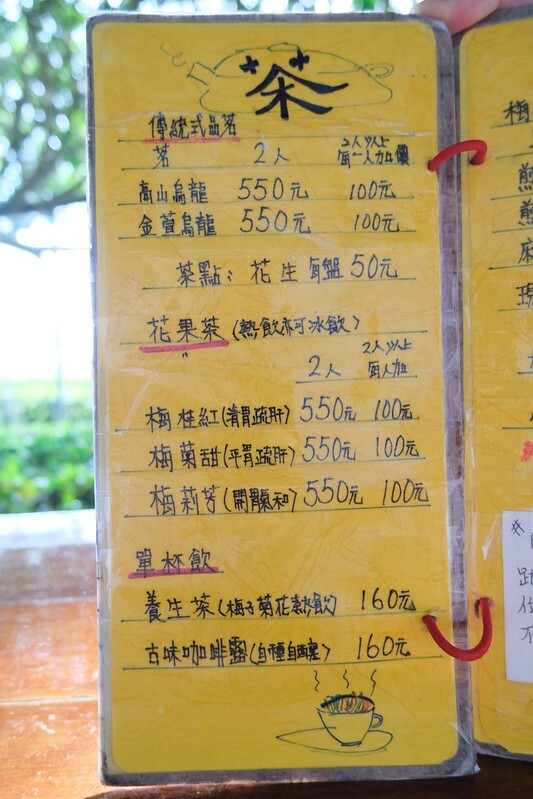 茶
傳統式品茗
茗 2人 2人以上每一人加價
高山烏龍 550元 100元
金萱烏龍 550元 100元
茶點: 花生每盤50元
花果茶(熱飲亦可冰飲)
2人 2人以上每人加
梅桂紅(清胃疏肝) 550元 100元
梅菊甜(平胃疏肝) 550元 100元
梅莉芳(開鬱氣和) 550元 100元
單杯飲
養生茶(梅子菊花熱飲) 160元
古味咖啡露(自種自曬) 160元
梅